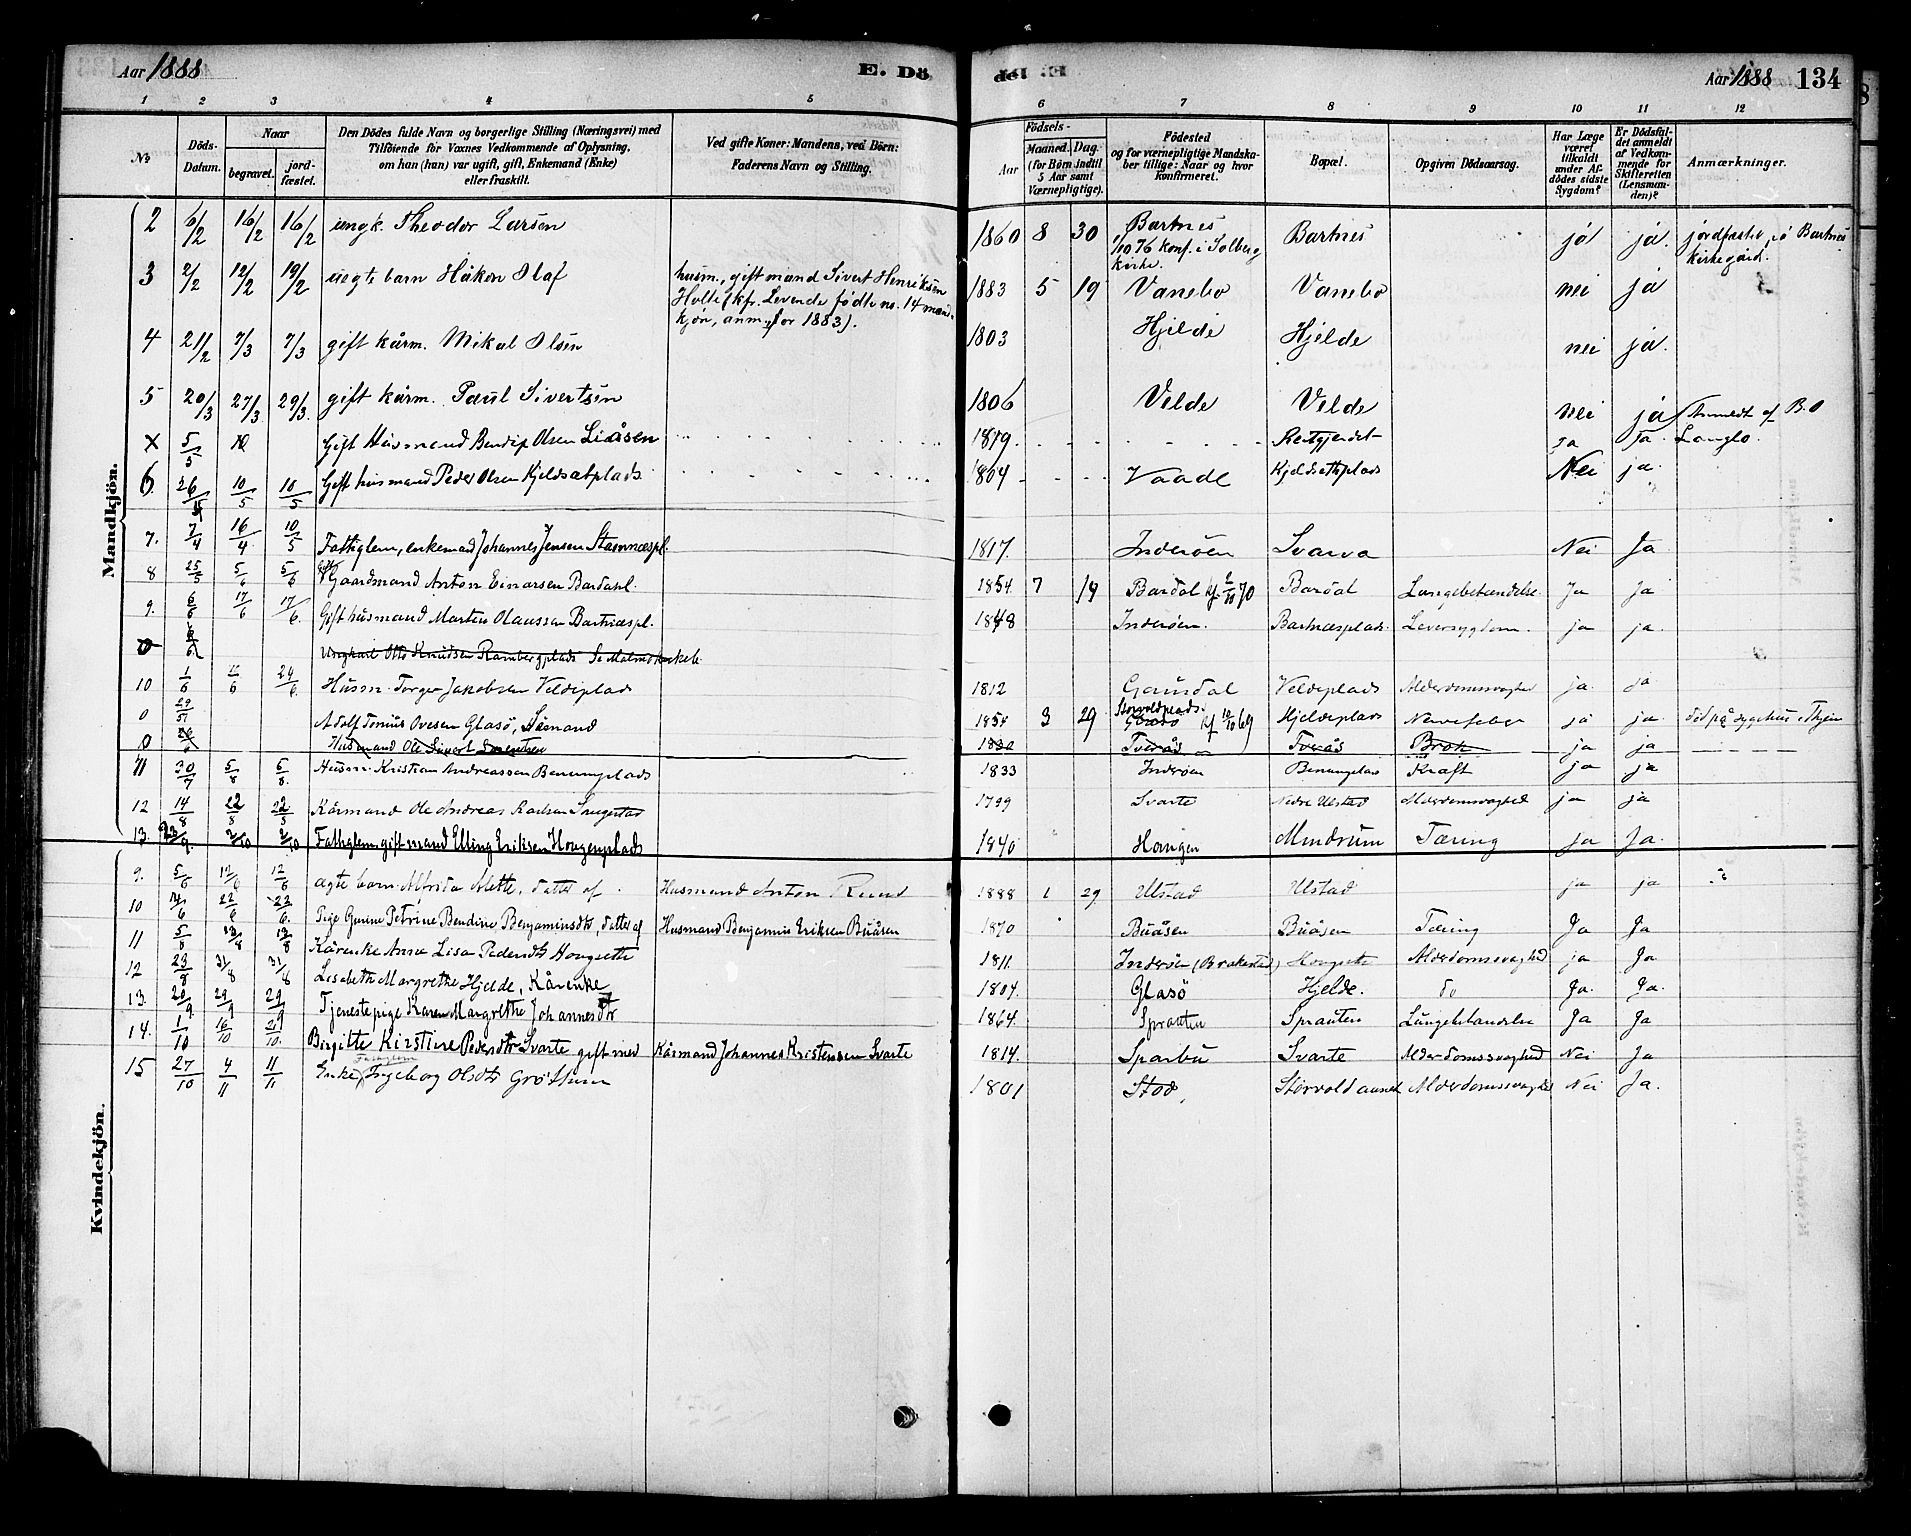 Aar 1888 E. Dö
1 2 3 4 5
No Döds-Datum. Naar begravet. jord-fæstet. Den Dödes fulde Navn og borgerlige Stilling (Næringsvei) med Tilföiende för Voxnes Vedkommende af Oplysning, om han (hun) var ugift, gift, Enkemand (Enke) eller fraskilt. Ved gifte Koner: Mandens, ved Börn: Faderens Navn og Stilling.
Mandkjön.
2 6/2 16/2 16/2 ungk. Theodor Larsen
3 2/2 12/2 19/2 uegte barn Håkon Olaf husm., gift mand Sivert Henriksen
Holte (kfr. Levende födte no. 14 mand-
kjön, anm. for 1883).
4 21/2 7/3 7/3 gift kårm. Mikal Olsen
5 20/3 27/3 29/3 gift kårm. Paul Sivertsen
x 5/5 Gift Husmand Bendip Olsen Liåsen
6. 26/4 10/5 10/5 Gift husmand Peder Olsen Kjeldsætplads.
7. 7/4 16/4 10/5 Fattiglem, enkemad Johannes Jensen Stamnæspl.
8 25/5 5/6 5/6 gift Gaardmand Anton Einarsen Bardahl.
9. 6/6 17/6 17/6. Gift husmand Morten Olaussen Bartnæspl.
0 Ungkarl Otto Knudsen Rambergplads Se Malmo kirkeb.
10 1/6 24/6. Husm. Torger Jakobsen Veldeplads
0 Adolf Tonius Ovesen Glasö, Sömand
0 Husmand Ole Sivert Sørensen
11 30/7 5/8 5/8. Husm. Kristian Andreassen Benumplads
12 14/8 22/8 22/8 Kårmand Ole Andreas
13. 23/9 2/10 2/10 Fattiglem, gift mand Elling Eriksen Hougenplads
Kvindekjön.
9. 5/6 12/6 12/6 ægte barn Alfrida Mette, datter af Husmand Anton Ruud
10 14/6 22/6 23/6. Pige Gurine Petrine Bendine Benjaminsdtr, datter af Husmand Benjamin Eriksen Buåsen
11 5/8 13/8 13/8 Kårenke Anne Lisa Pedersdtr Hougsette
12 23/8 31/8 31/8 Lisabeth Margrethe Hjelde, Kårenke
13. 20/9 29/9 29/9 Tjenestepige Karen Margrethe Johannesdtr
14. 1/10 16/10 21/10. Birgitte Kirstine Pedersdtr Svarte gift med Kårmand Johannes Kristensen Svarte
15 27/10 4/11 11/11 Enke, Fattiglem Ingeborg Olsdtr Gröttum
de Aar 1888 134
6 7 8 9 10 11 12
Födsels- Aar Maaned. Dag. (for Börn indtil 5 Aar samt Værnepligtige). Födested og for værnepligtige Mandska-ber tillige: Naar og hvor konfirmeret. Bopæl. Opgiven Dödsaarsag. Har Læge været tilkaldt under Af-dödes sidste Sygdom? Er Dödsfal-det anmeldt af Vedkom-mende for Skifteretten (Lensman-den)? Anmærkninger.
1860 8 30 Bartnes Bartnes jå ja. jordfæstet på Bartnes
1/10 76 konf. i Solberg kirkegård.
kirke.
1883 5 19 Vanebo Vanebo nei ja
1803 Hjelde Hjelde nei ja.
1806 Velde Velde nei ja Anmeldt af B.O
1819 Restgjerdet Ja Ja. Langlo.
1804 Vaade Kjeldsethplads Nei ja.
1817. Inderöen Svarva Nei Ja
1854 7 14 Bardal kf. 2/10 70 Bardal Lungebetændelse. Ja Ja
1848 Inderöen. Bartnæsplads. Leversygdom. ja ja.
1812 Gaundal Veldeplads Alderdomssvaghed ja. ja
1854 3 29 Storveldplads Glasö kf 10/10 69 Hjeldeplads Nervefeber ja ja. död på sygehus i Thjem
1830 Tverås Tverås Brok ja ja
1833 Inderöen Benumplads Kræft ja ja
1799 Svarte Nedre Ulstad Alderdomssvaghed ja ja
1840 Haugen Alindrum Tæring ja Ja.
1888 1 29 Ulstad Ulstad ja ja
1870 Buåsen Buåsen Tæring Ja Ja
1811. Inderöen (Brakestad) Hougsette Alderdomssvaghed ja Ja
1804. Glasö Hjelde. do Ja. Ja.
1864. Sprauten Sprauten Lungebetændelse Ja Ja
1814. Sparbu Svarte Alderdomssvaghed Nei Ja
1801 Stod, Storvold aunet Alderdomssvaghed Nei Ja.